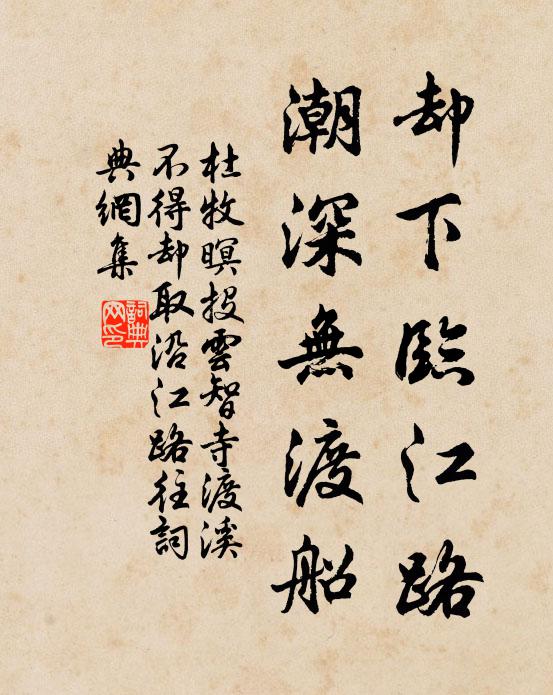 却下臨江路
潮深無渡船
杜牧暝投雲智寺渡溪
不得却取沿江路往詞
典網集
詞典
网印